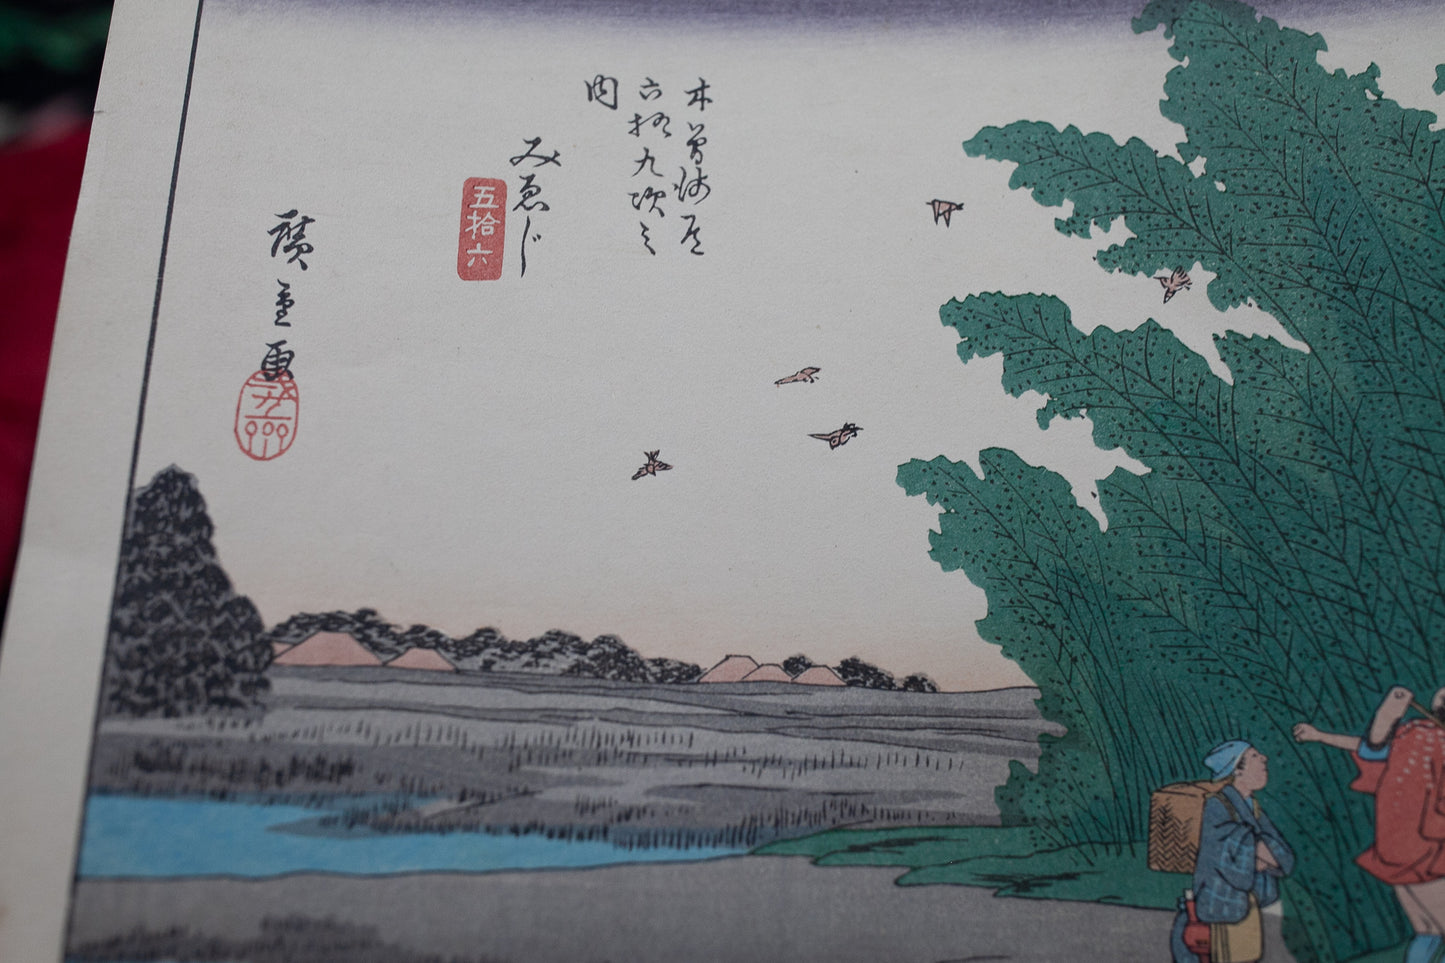 木曽海道
六拾九次之
内
みゑじ
五拾六
廣重画